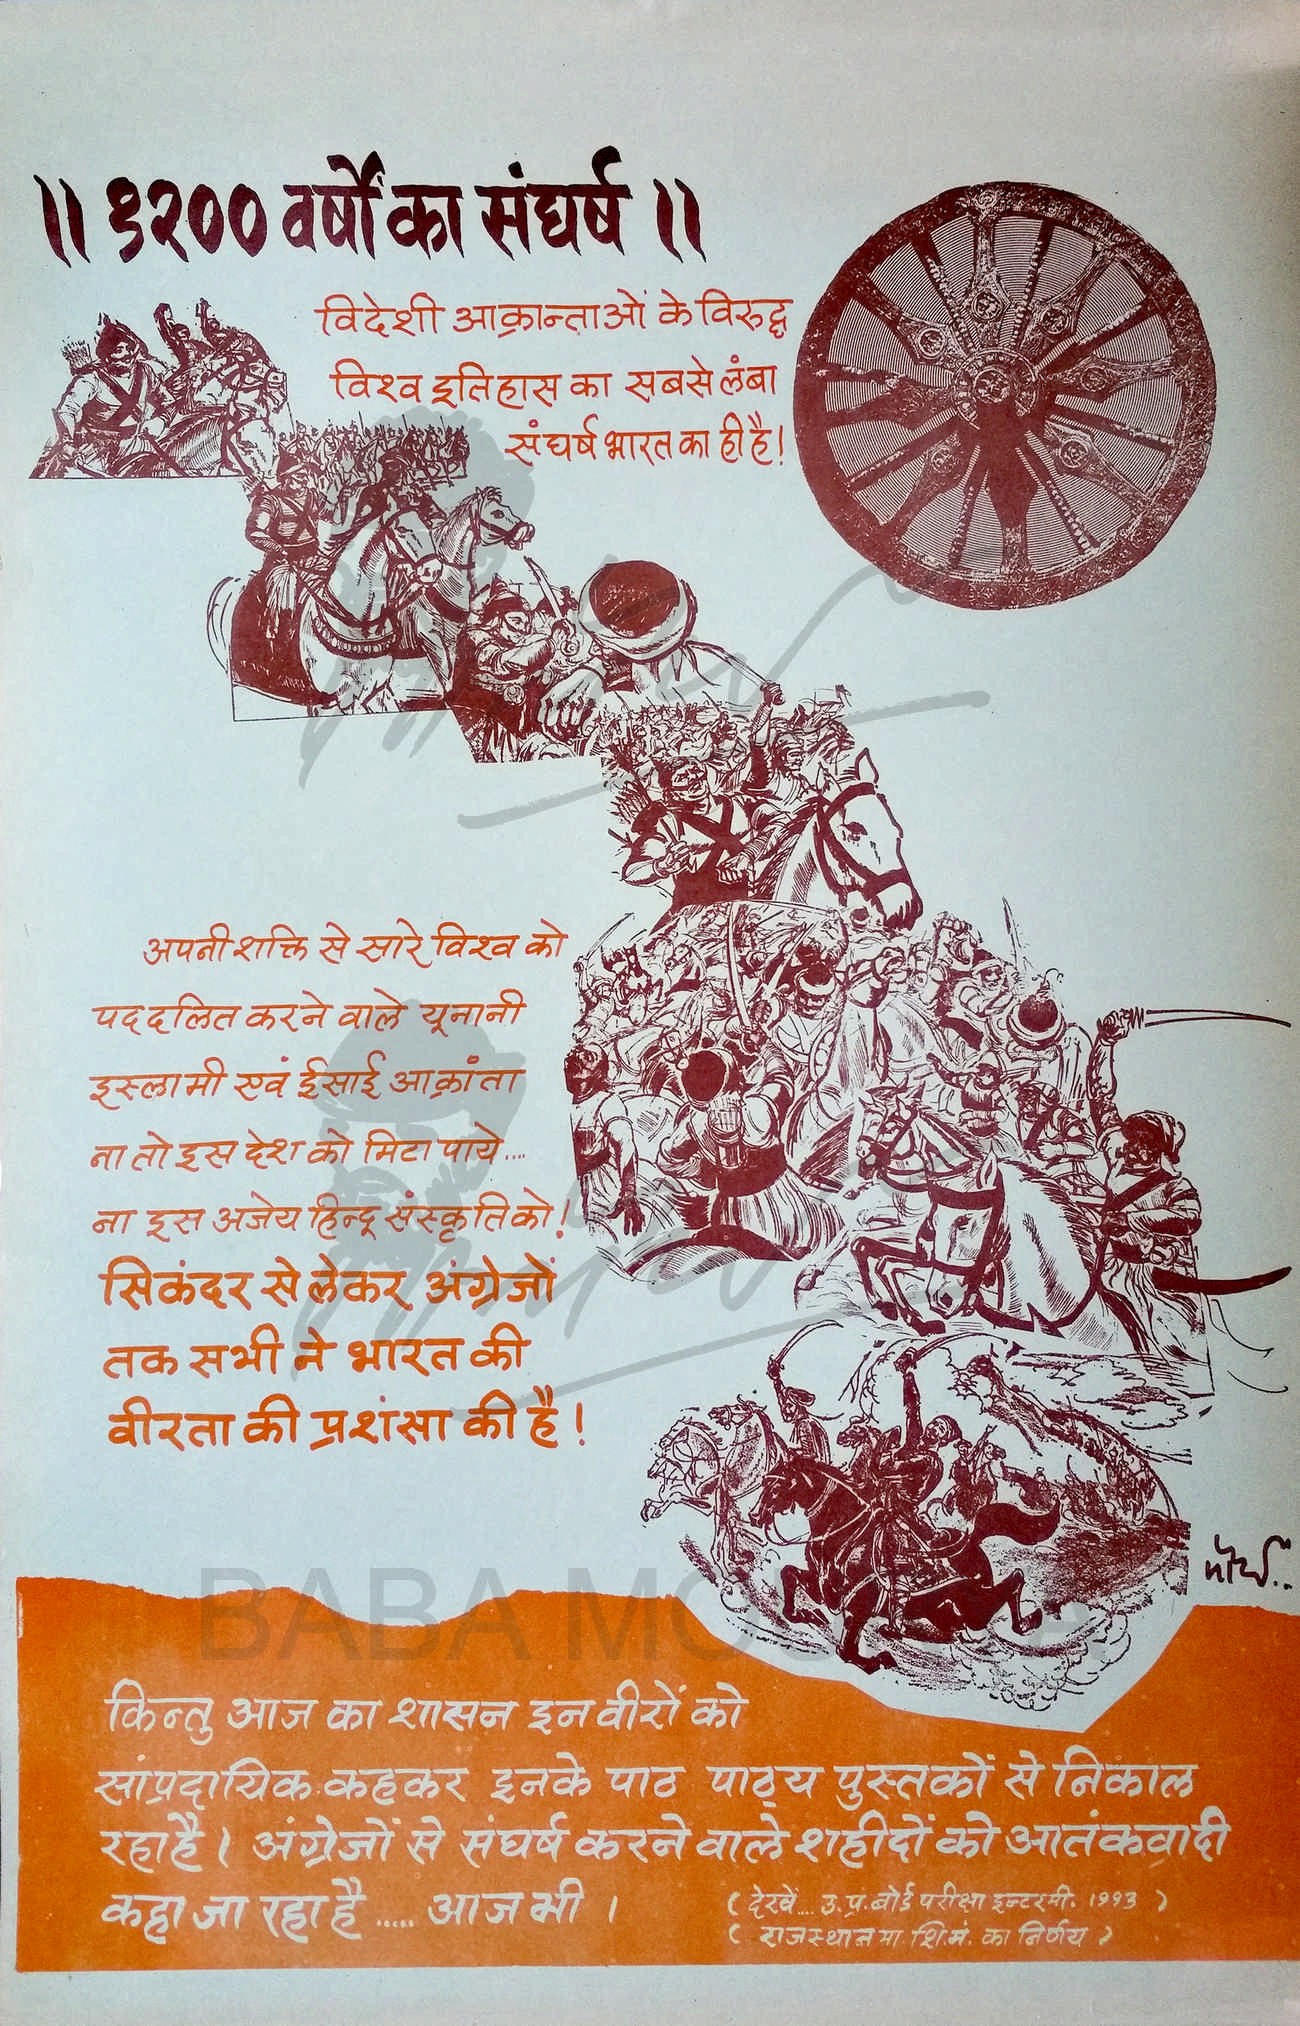 ।। १२०० वर्षों का संघर्ष ।।
विदेशी आक्रान्ताओं के विरुद्ध
विश्व इतिहास का सबसे लंबा
संघर्ष भारत का ही है!
अपनी शक्ति से सारे विश्व को
पददलित करने वाले यूनानी
इस्लामी एवं ईसाई आक्रांता
ना तो इस देश को मिटा पाये....
ना इस अजेय हिन्दू संस्कृति को!
सिकंदर से लेकर अंग्रेजों
तक सभी ने भारत की
वीरता की प्रशंसा की है!
मौर्य..
BABA
किन्तु आज का शासन इन वीरों को
सांप्रदायिक कहकर इनके पाठ पाठ्य पुस्तकों से निकाल
रहा है। अंग्रेजों से संघर्ष करने वाले शहीदों को आतंकवादी
कहा जा रहा है ..... आज भी ।
( देखें.... उ. प्र. बोर्ड परीक्षा इन्टरमी. १९९३ )
( राजस्थान मा. शि. मं. का निर्णय )